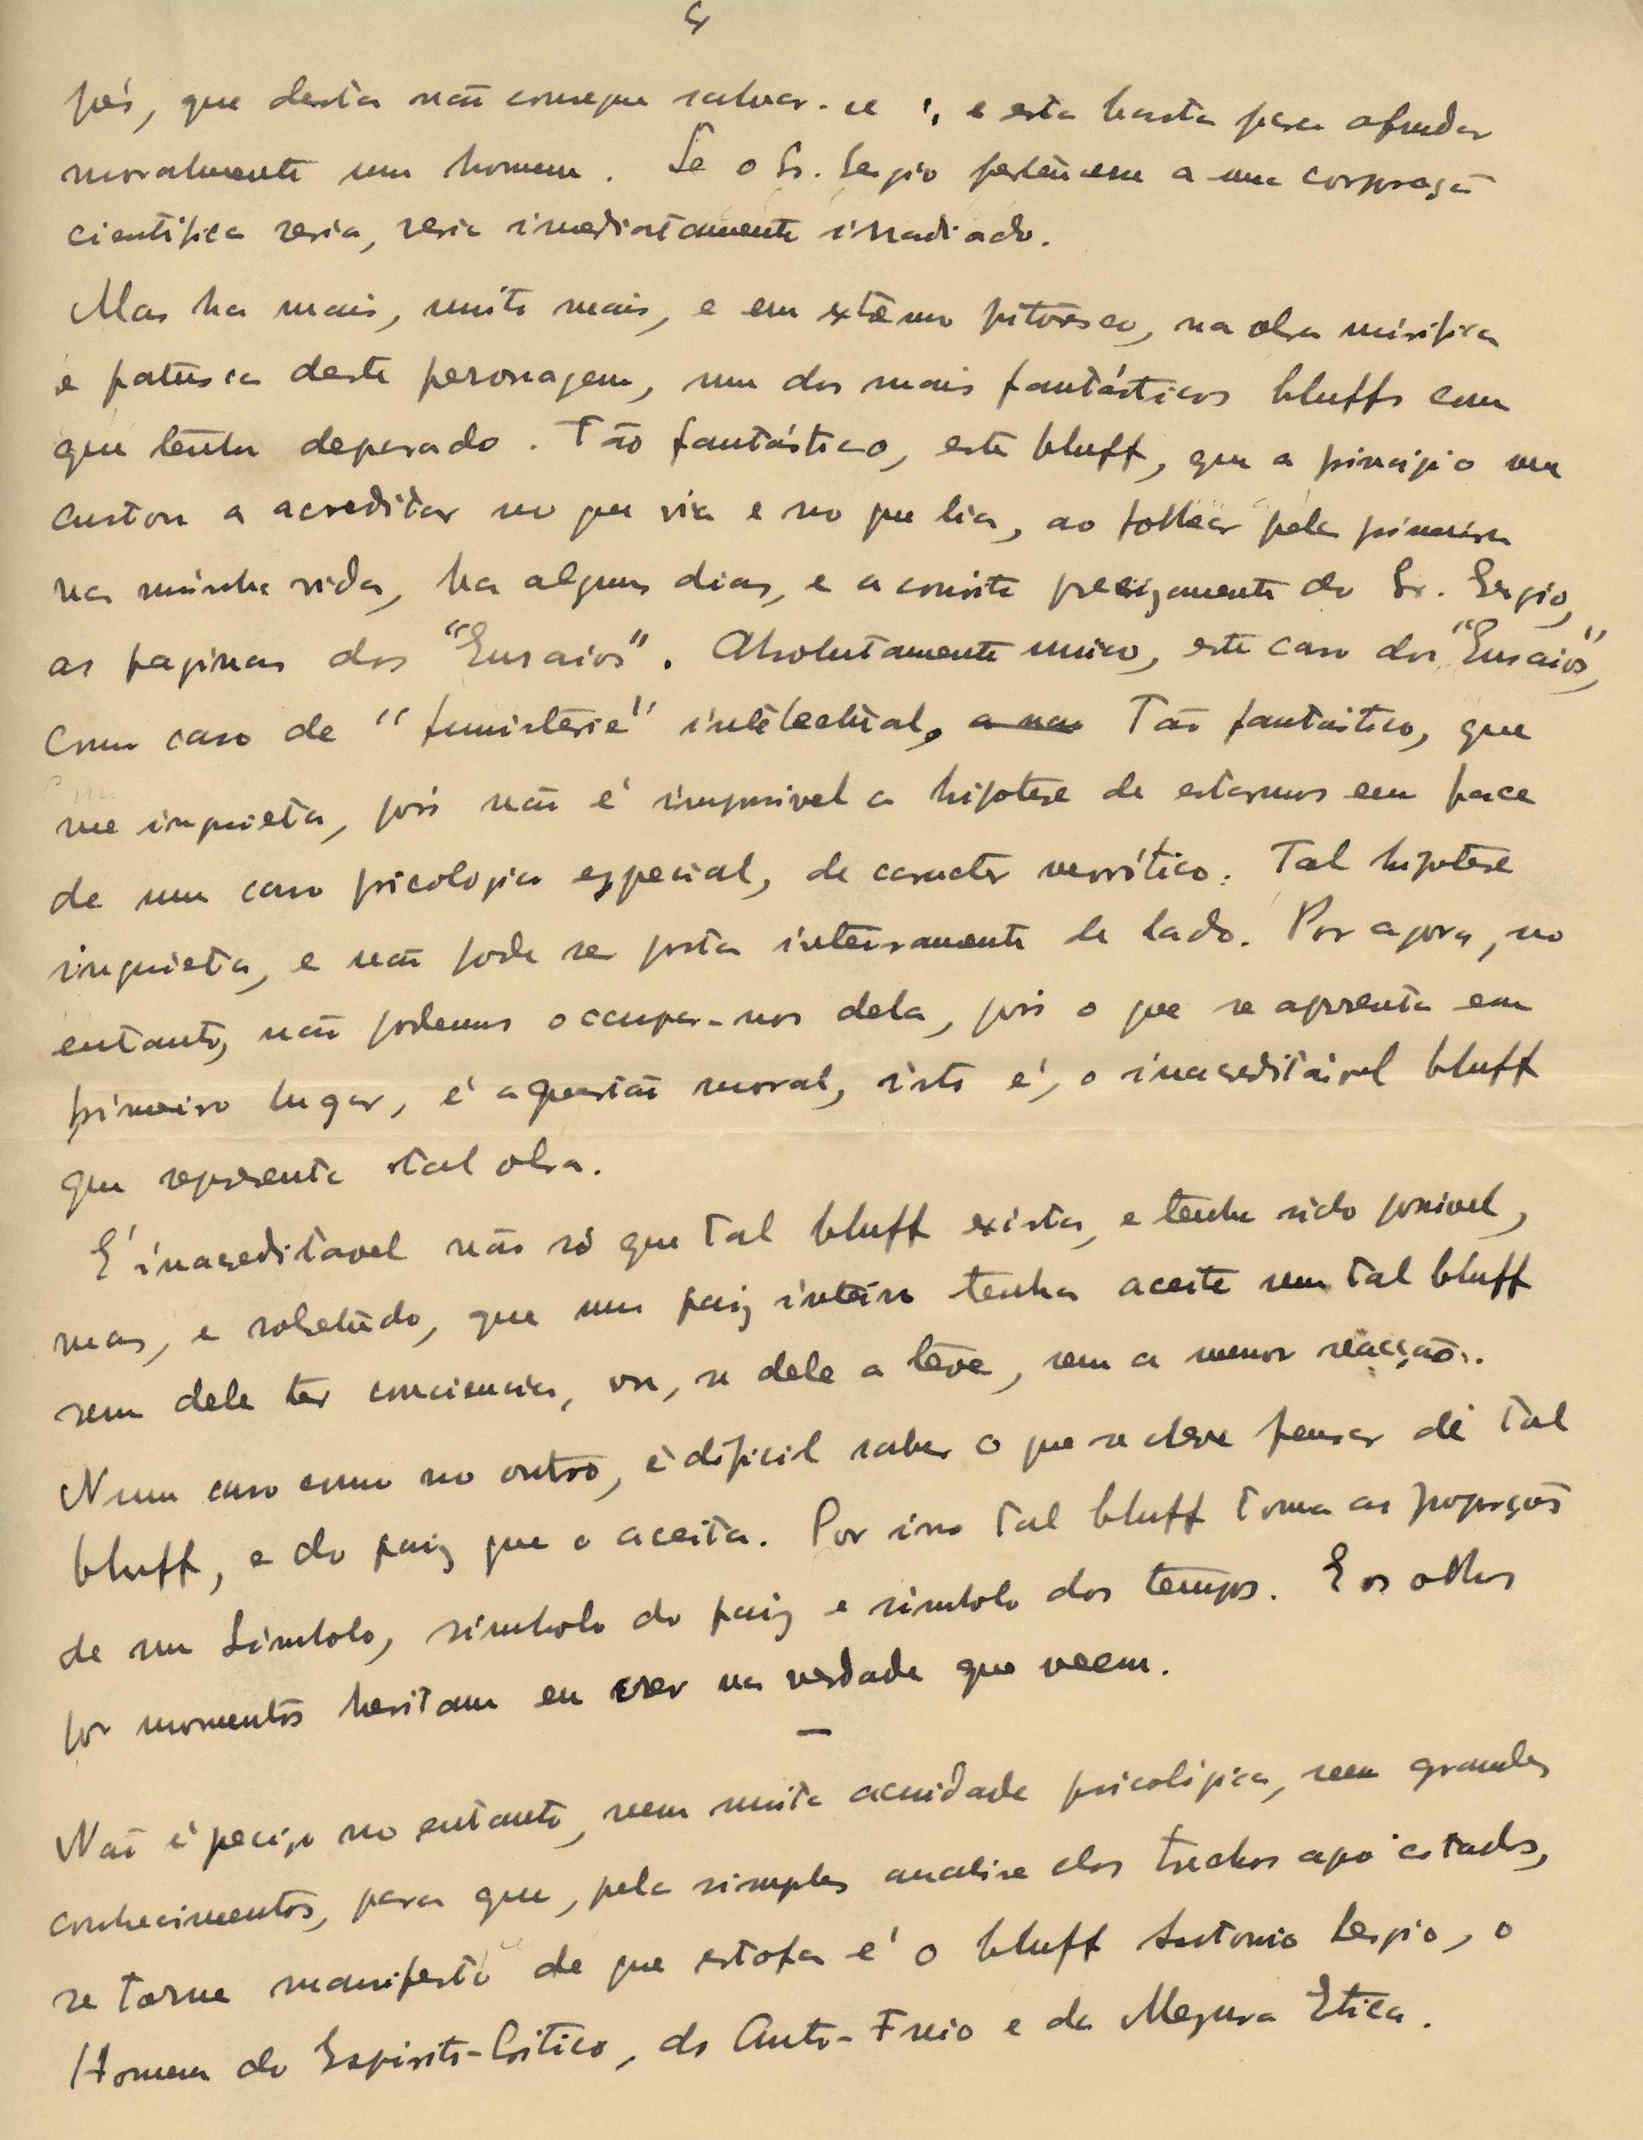 pés, que desta não consegue salvar-se; e esta basta para afundar
moralmente um homem. Se o Sr. Sergio pertencem a uma corporaçã
cientifica seria, seria imediatamente irradiado.
Mas ha mais, muito mais, e em extremo pitoresco, na obra mirifica
e patusca deste personagem, um dos mais fantásticos bluffs com
que tenho deparado. Tão fantástico, este bluff, que a principio me
custou a acreditar no que via e no que lia, ao folhear pela primeira
na minha vida, ha alguns dias, e a convite precizamente do Sr. Sergio,
as paginas dos "Ensaios". Absolutamente unico, este caso dos "Ensaios",
como caso de "fumisterie" intelectual. Tão fantástico, que
me inquieta, pois não é impossivel a hipotese de estarmos em face
de um caso psicologico especial, de caracter nevrótico. Tal hipotese
inquieta, e não pode ser posta inteiramente de lado. Por agora, no
entanto, não podemos occupar-nos dela, pois o que se apresenta em
primeiro lugar, é a questão moral, isto é, o inacreditável bluff
que representa tal obra.
É inacreditavel não só que tal bluff exista, e tenha sido possivel,
mas, e sobretudo, que um paiz inteiro tenha aceite um tal bluff
sem dele ter consciencia, ou, se dele a teve, sem a menor reacção.
Num caso como no outro, é dificil saber o que se deve pensar de tal
bluff, e do paiz que o aceita. Por isso tal bluff toma as proporções
de um Simbolo, simbolo do paiz e simbolo dos tempos. E os olhos
por momentos hesitam em crer na verdade que veem.
—
Não é preciso no entanto, nem muita acuidade psicológica, nem grandes
conhecimentos, para que, pela simples analise dos trechos aqui citados,
se torne manifesto de que estofa é o bluff Antonio Sergio, o
Homem do Espirito-Critico, do Auto-Freio e da Mezura Etica.